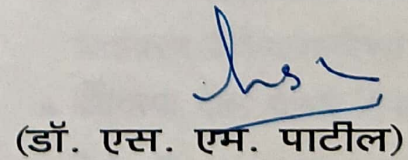 (डॉ. एस. एम. पाटील)